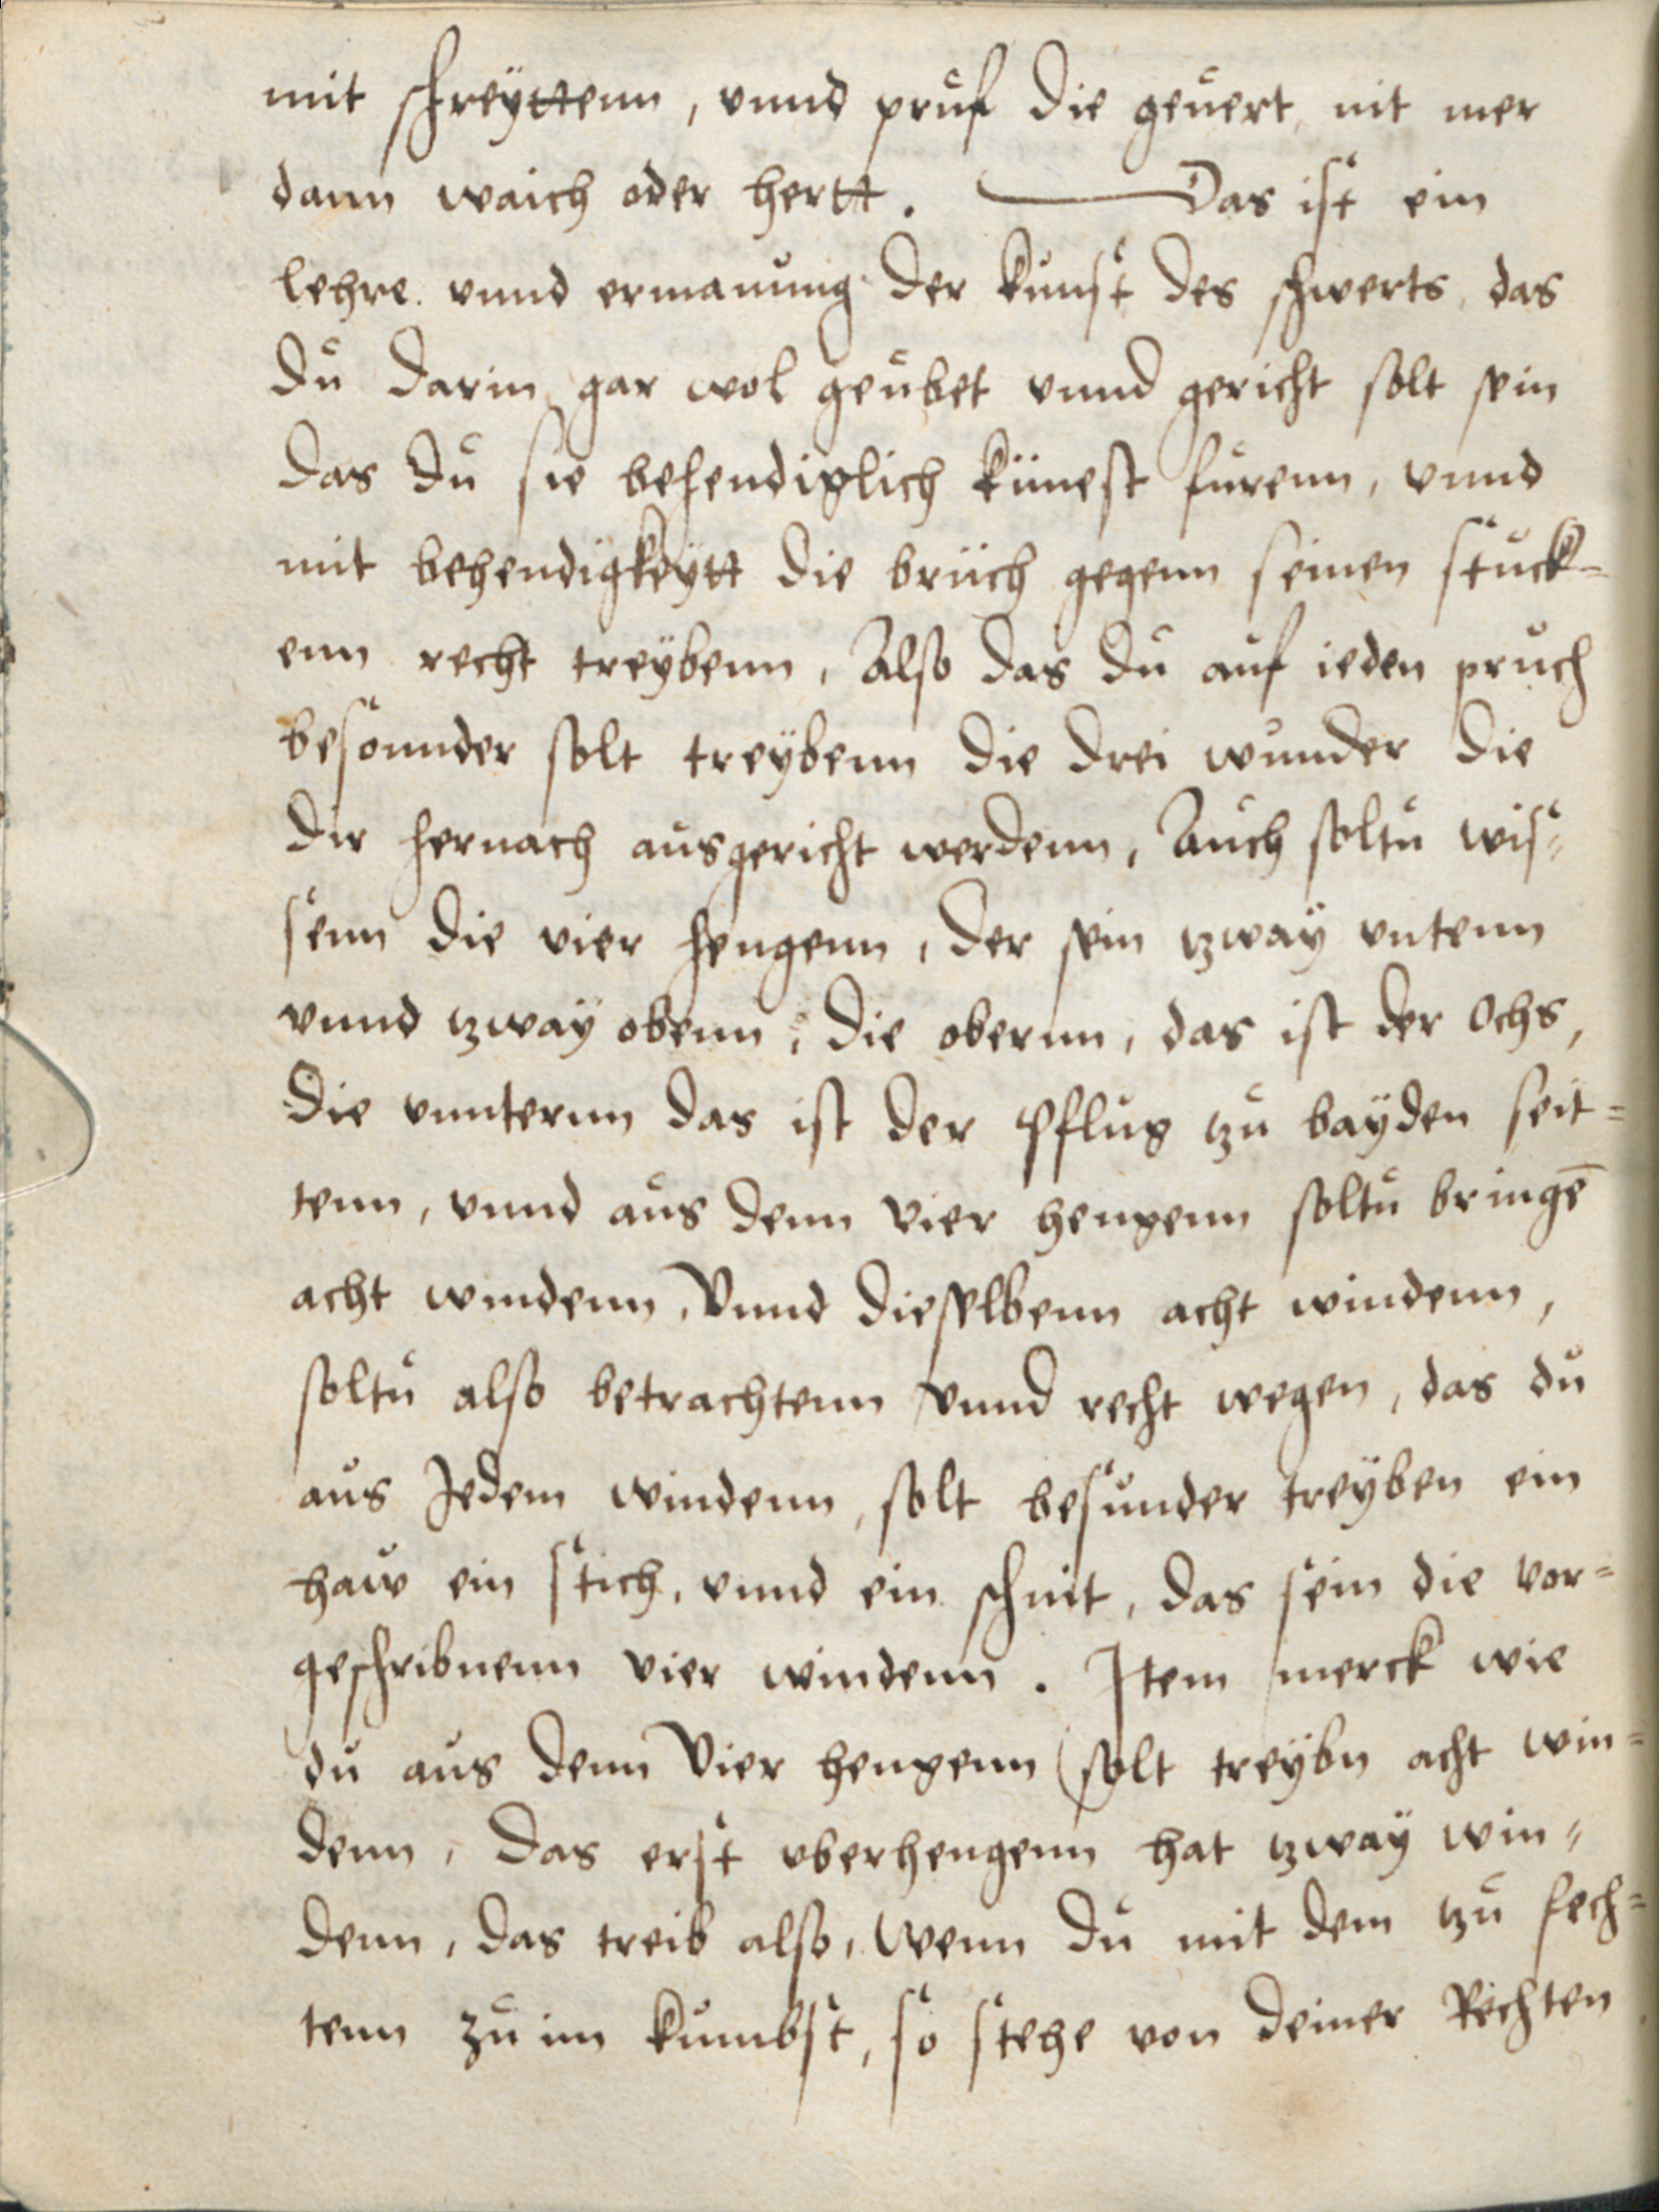 mit schreÿttenn, vnnd pruf die geuert, nit mer
dann waich oder hertt. Das ist ein
lehre. vnnd ermanung der kunst des schwerts, das
du darin gar wol geubet vnnd gericht solt sein
das du sie behendiglich künest furenn, vnnd
mit behendigkeÿtt die brüch gegenn seinen stuck-
enn recht treÿbenn, Also das du auf ieden pruch
besonnder solt treÿbenn die drei wunder die
dir hernach ausgericht werdenn, Auch soltu wis-
senn die vier hengenn, der sein tzwaÿ vntenn
vnnd tzwaÿ obenn, die obernn, das ist der Ochs,
Die vnnternn das ist der Pflug tzu baÿden seit-
tenn, vnnd aus denn vier hengenn soltu bringē
acht windenn, Vnnd dieselbenn acht windenn,
soltu also betrachtenn vnnd recht wegen, das du
aus Jedem windenn, solt besunder treÿben ein
haw ein stich, vnnd ein schnit, das sein die vor-
geschribnenn vier windenn. Jtem merck wie
du aus denn Vier hengenn solt treÿbn acht win-
denn, Das erst vberhengenn hat tzwaÿ win-
denn, das treib also, Wenn du mit dem tzu fech-
tenn zu im kumbst, so stehe von deiner Rechten